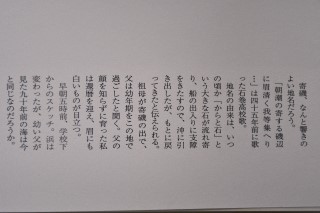 寄磯、なんと響きの
よい地名だろう。
「朝潮の寄する磯辺
に眉清く我等集へり
…」は四十五年前に歌
った石巻高校歌。
地名の由来は、いつ
の頃か「からと石」と
いう大きな石が流れ寄
り、船の出入りに支障
をきたすので、沖に引
き出したが、もとに戻
ってきたと伝えられる。
祖母が寄磯の出で、
父は幼年期をこの地で
過ごしたと聞く。父の
顔を知らずに育った私
は還暦を迎え、眉にも
白いものが目立つ。
早朝五時前、学校下
からのスケッチ。浜は
変わったが、幼い父が
見た九十年前の海は今
と同じなのだろうか。